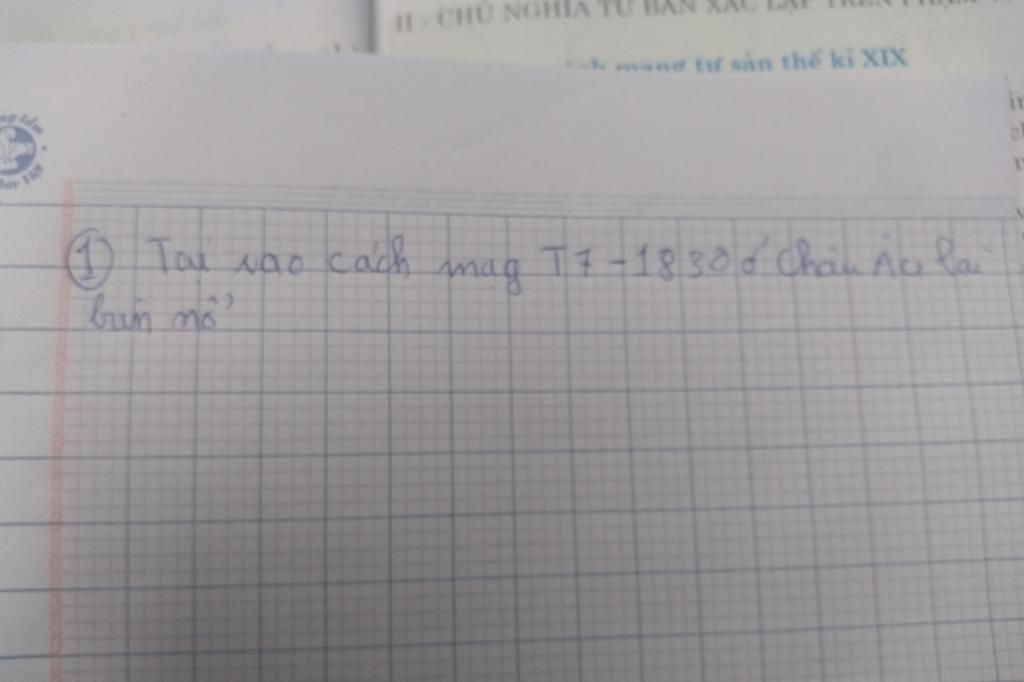 II - CHỦ NGHĨA TƯ BẢN XÁC LẬP TRÊN PHẠM
mạng tư sản thế kỉ XIX
① Tại sao cách mag T7-1830 ở Châu Âu lại
bùn nổ